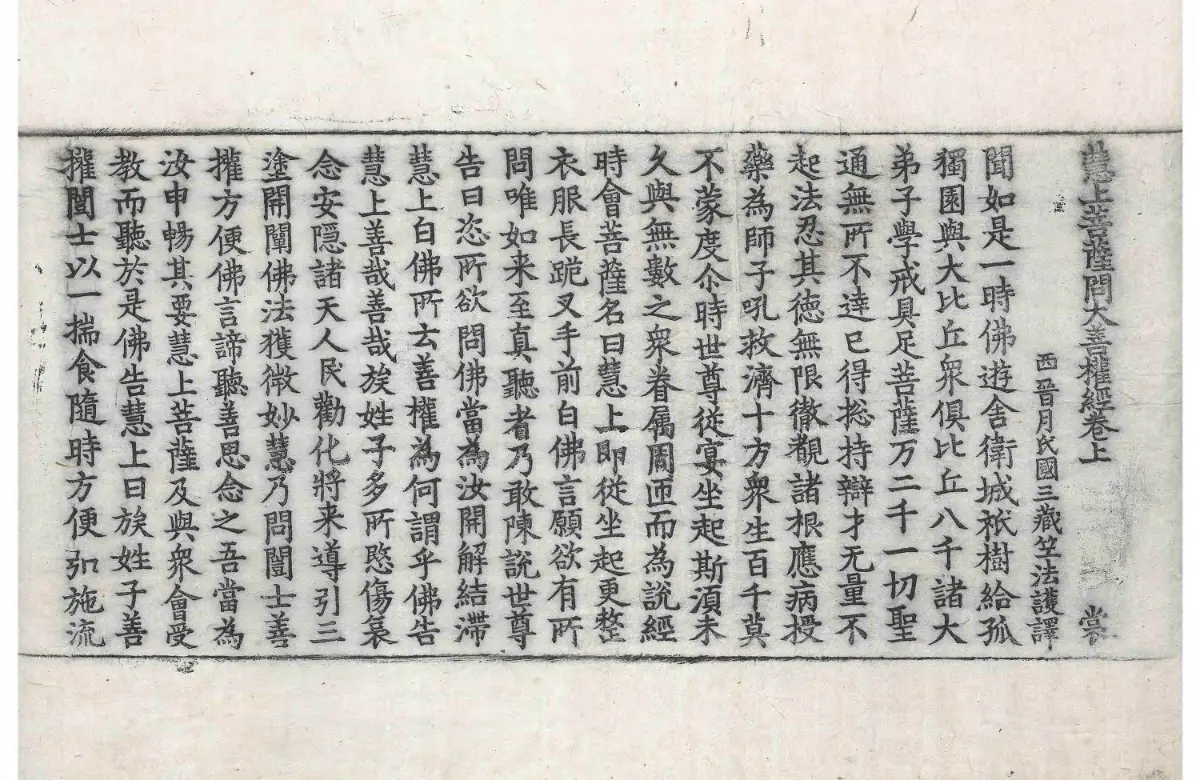 慧上菩薩問大善權經卷上　裳
西晉月氏國三藏竺法護譯
聞如是一時佛遊舍衛城祇樹給孤
獨園與大比丘衆俱比丘八千諸大
弟子學戒具足菩薩万二千一切聖
通無所不達已得捴持辯才无量不
起法忍其德無限徹覩諸根應病授
藥為師子吼救濟十方衆生百千莫
不蒙度尒時世尊從宴坐起斯湏未
久與無數之衆眷属圍匝而為說經
時會菩薩名曰慧上即從坐起更整
衣服長跪叉手前白佛言願欲有所
問唯如来至真聽者乃敢陳說世尊
告曰恣所欲問佛當為汝開解結滯
慧上白佛所云善權為何謂乎佛告
慧上善哉善哉族姓子多所愍傷哀
念安隠諸天人民勸化將来導引三
塗開闡佛法獲微妙慧乃問闓士善
攉方便佛言諦聽善思念之吾當為
汝申暢其要慧上菩薩及與衆會受
教而聽於是佛告慧上曰族姓子善
攉闓士以一揣食隨時方便弘施流